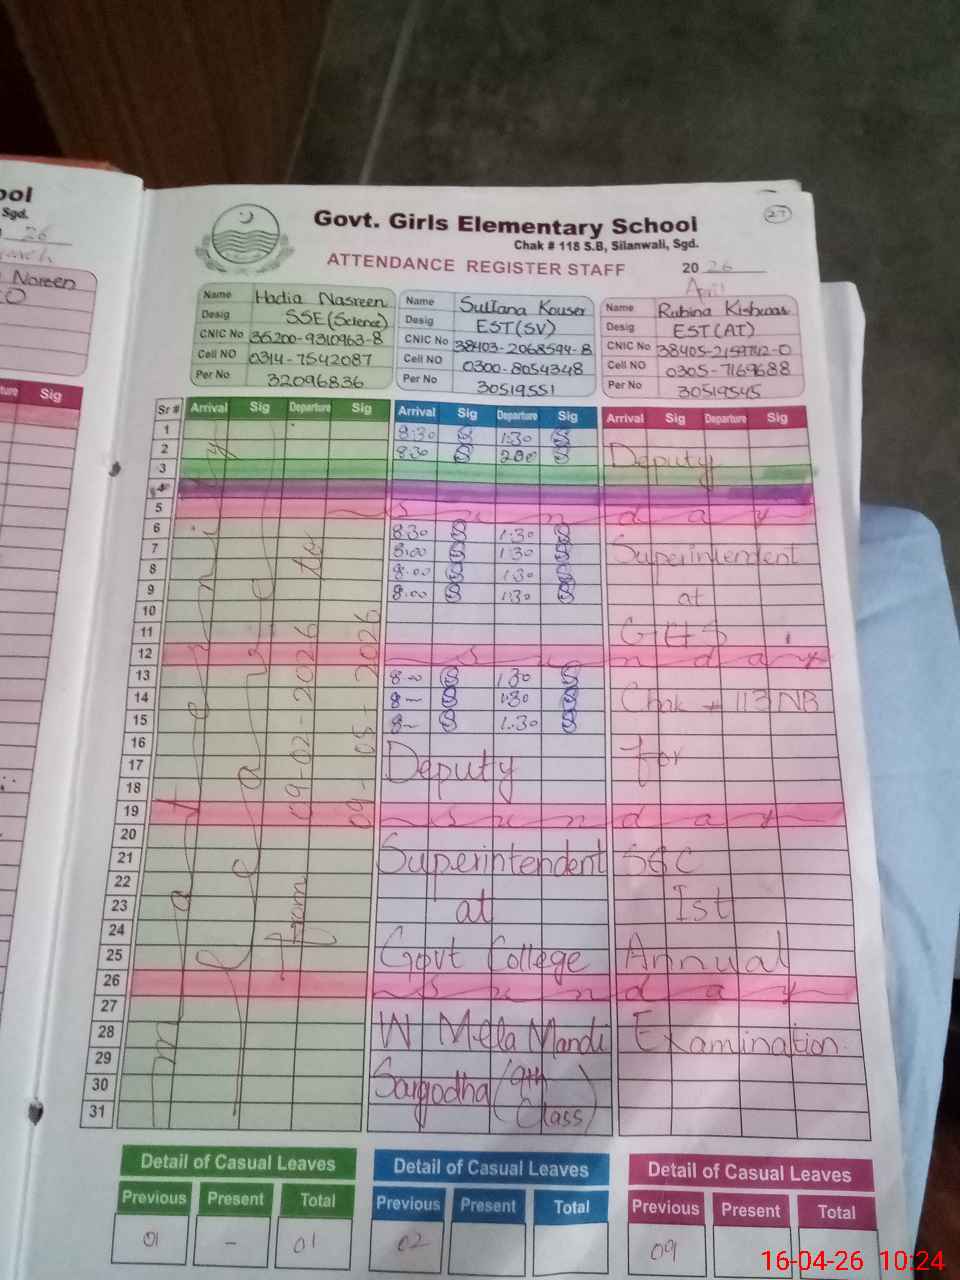 ool
Sgd.
26
Noreen
ture Sig
27
Govt. Girls Elementary School
Chak # 118 S.B, Silanwali, Sgd.
ATTENDANCE REGISTER STAFF 2026
April
Name Hadia Nasreen
Desig SSE(Science)
CNIC No 36200-9310963-8
Cell NO 0314-7542087
Per No 32096836
Name Sultana Kouser
Desig EST(SV)
CNIC No 38403-2068594-8
Cell NO 0300-8054348
Per No 30519551
Name Rubina Kishwar
Desig EST(AT)
CNIC No
Cell NO 0305-7169688
Per No 30519545
Sr # Arrival Sig Departure Sig Arrival Sig Departure Sig Arrival Sig Departure Sig
1 8:30 1:30
2 8:30 200 Deputy
3
4
5 Sunday
6 8:30 1:30
7 8:00 1:30 Superintendent
8 8:00 1:30
9 8:00 1:30 at
10
11 GHS
12 Sunday
13 8-00 1:30
14 8- 1:30 Chak # 113 NB
15 8- 1:30
16
17 Deputy for
18
19 Sunday
20
21 Superintendent SSC
22
23 at Ist
24
25 Govt College Annual
26 Sunday
27
28 W Mela Mandi Examination
29
30 Sargodha (9th
31 Class)
maternity
leave
from 09-02-2026 to
09-05-2026
Detail of Casual Leaves Detail of Casual Leaves Detail of Casual Leaves
Previous Present Total Previous Present Total Previous Present Total
01 - 01 02 09
16-04-26 10:24